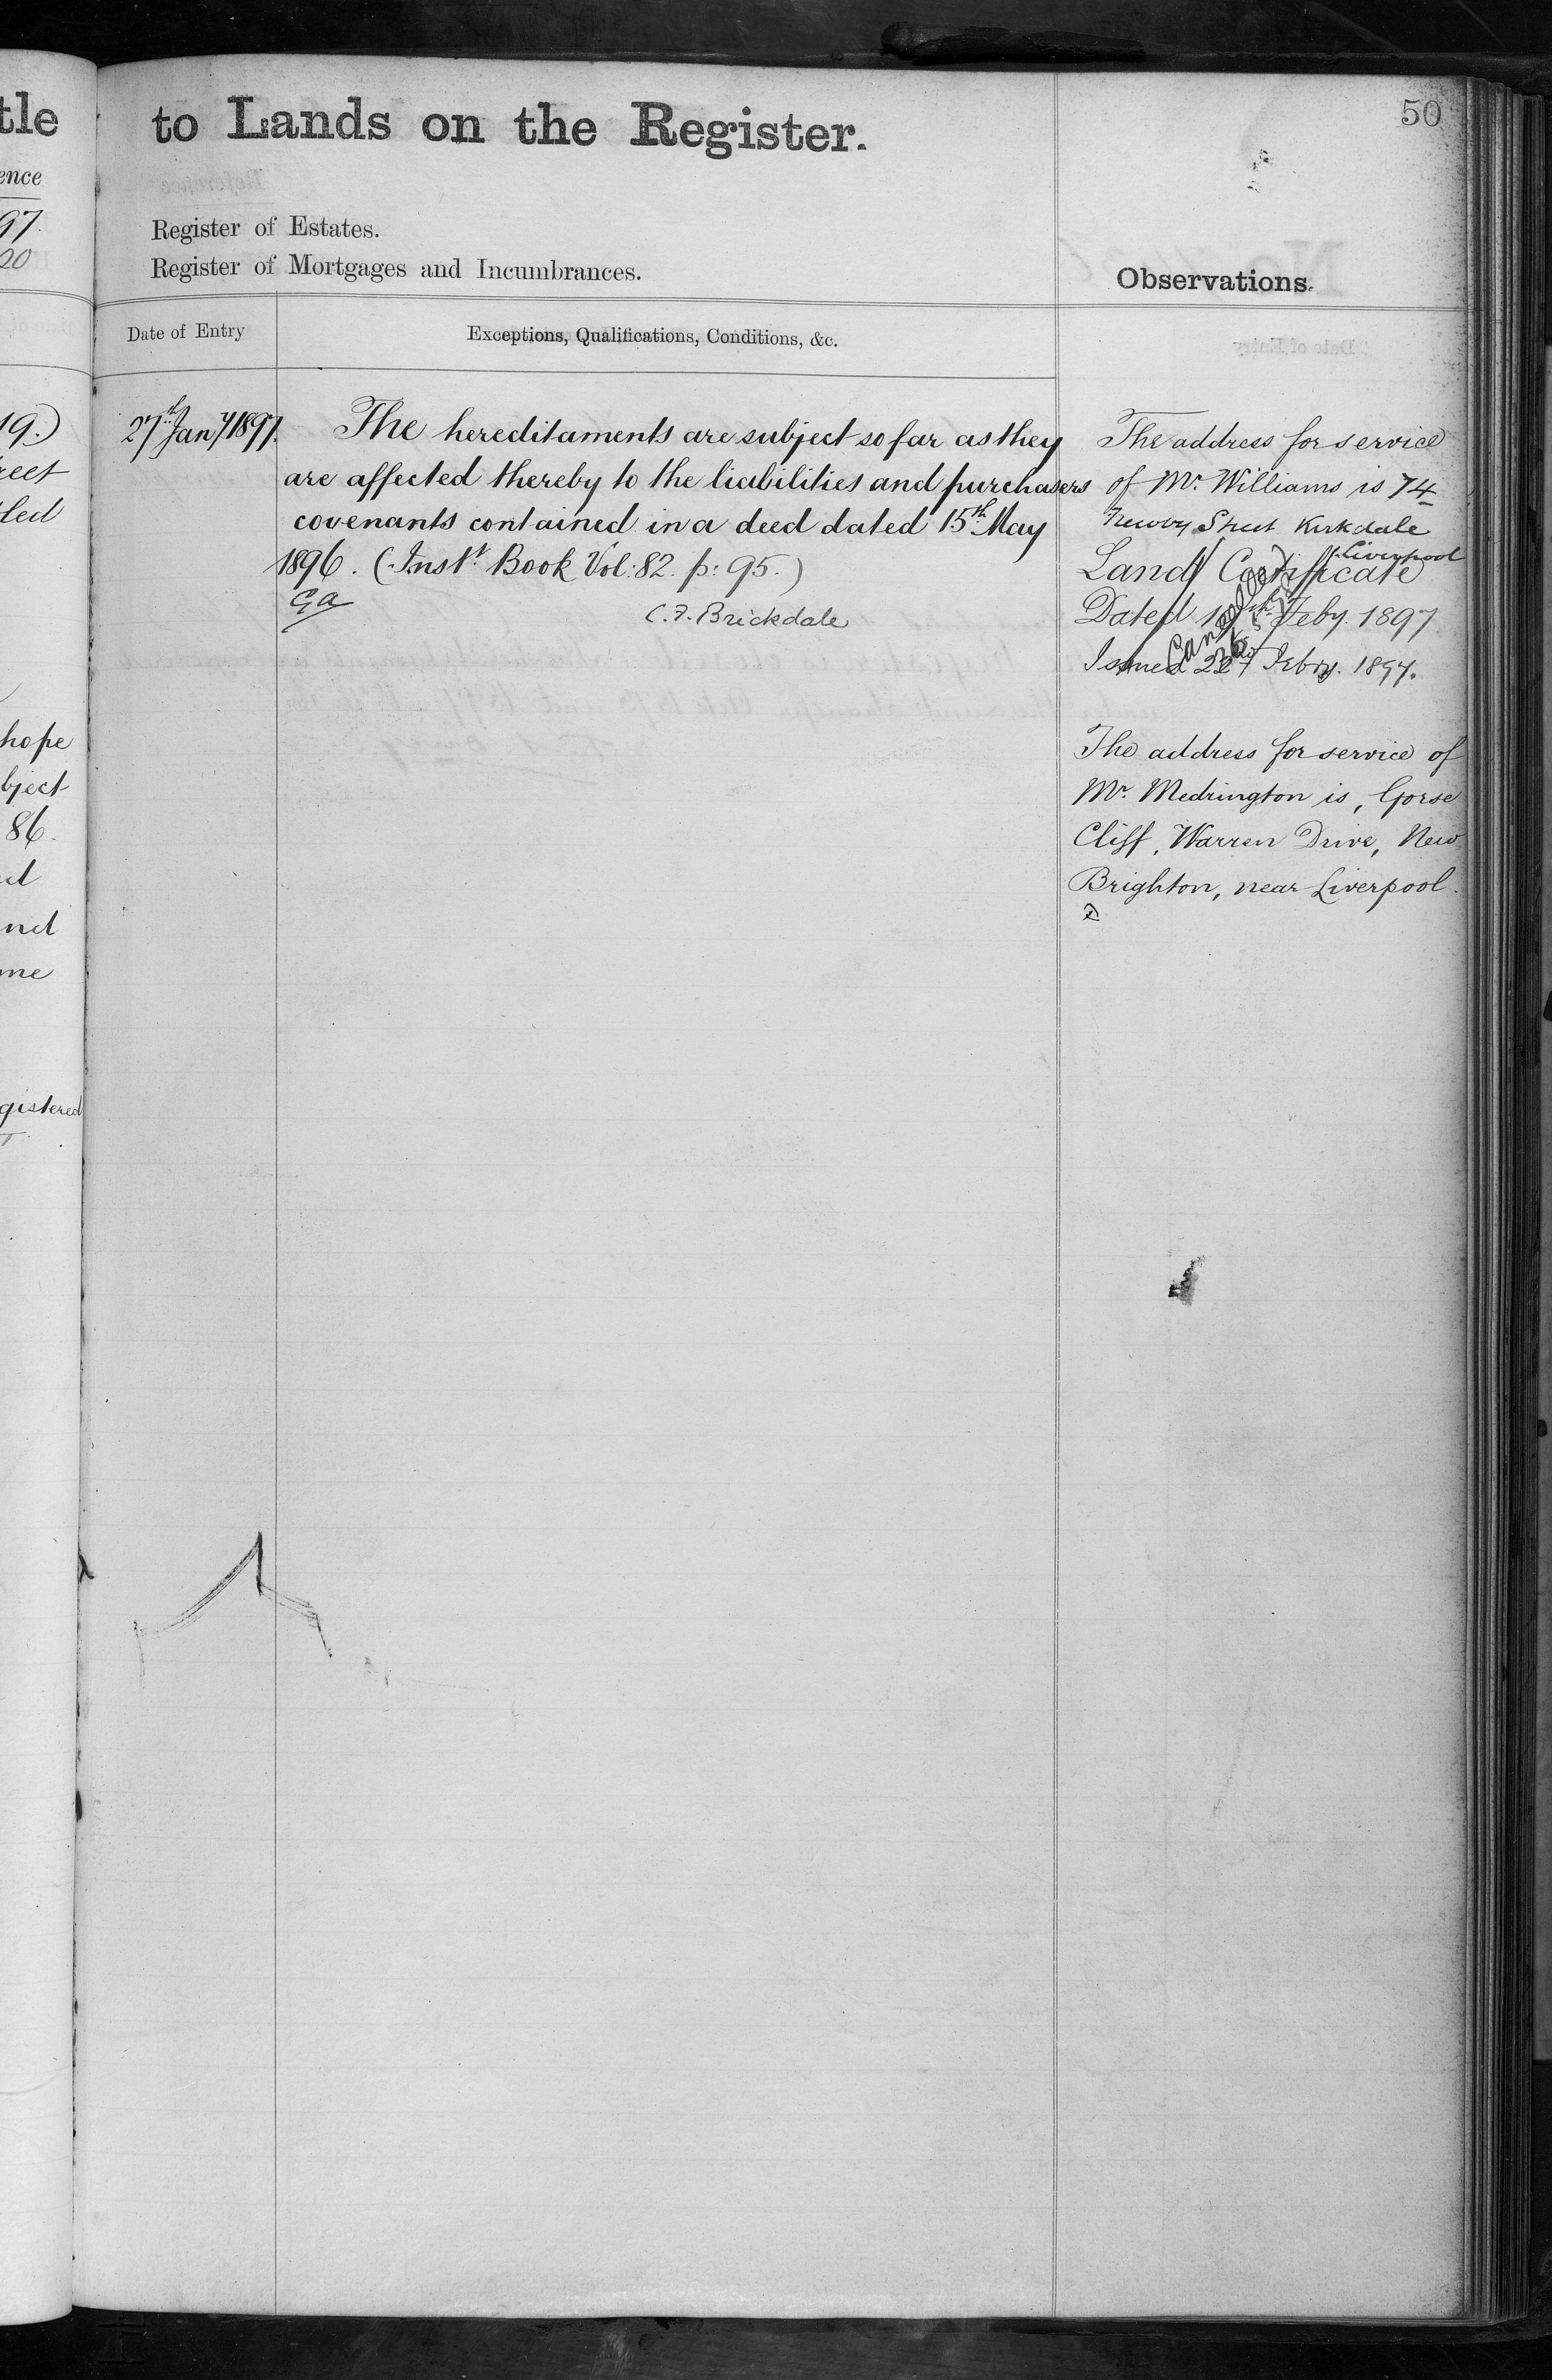 50
tle
to Lands on the Register.
ence
97.
20
Register of Estates.
Register of Mortgages and Incumbrances.
Observations.
Date of Entry
Exceptions, Qualifications, Conditions, &c.
19.)
reet
ted
hope
bject
86.
nd
me
gistered
27th Jany 1897.
The hereditaments are subject so far as they
are affected thereby to the liabilities and purchasers
covenants contained in a deed dated 15th May
1896. (Inst. Book Vol: 82. p: 95.)
GA
C.F. Brickdale
The address for service
of Mr. Williams is 74
Newby Street Kirkdale
Liverpool
Land Certificate
Cancelled
Dated 19th Feby. 1897
Issued 22nd Febry. 1897.
The address for service of
Mr. Medrington is, Gorse
Cliff, Warren Drive, New
Brighton, near Liverpool.